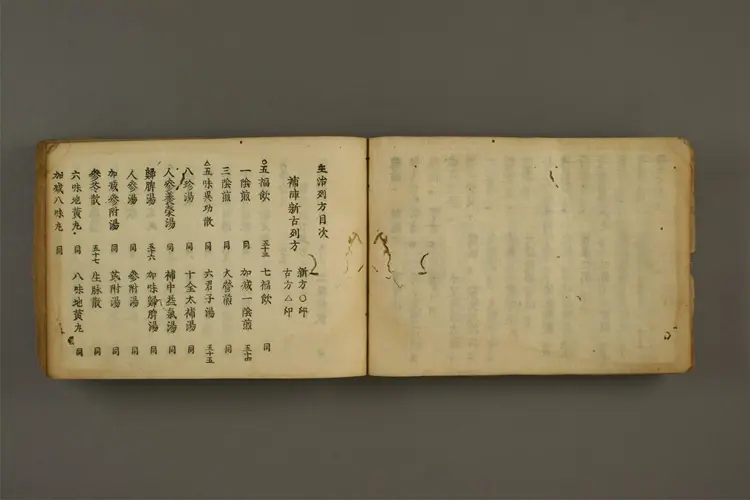 主治列方目次
補陣新古列方 新方○印
古方△印
○五福飲 五十三 七福飲 同
一陰煎 同 加减一陰煎 五十四
三陰煎 同 大營煎 同
△五味異功散 同 六君子湯 五十五
八珍湯 同 十全大補湯 同
人參養榮湯 同 補中益氣湯 同
歸脾湯 五十六 加味歸脾湯 同
人參湯 同 參附湯 同
加减參附湯 同 芪附湯 同
參冬散 五十七 生脉散 同
六味地黄丸 同 八味地黄丸 同
加减八味丸 同